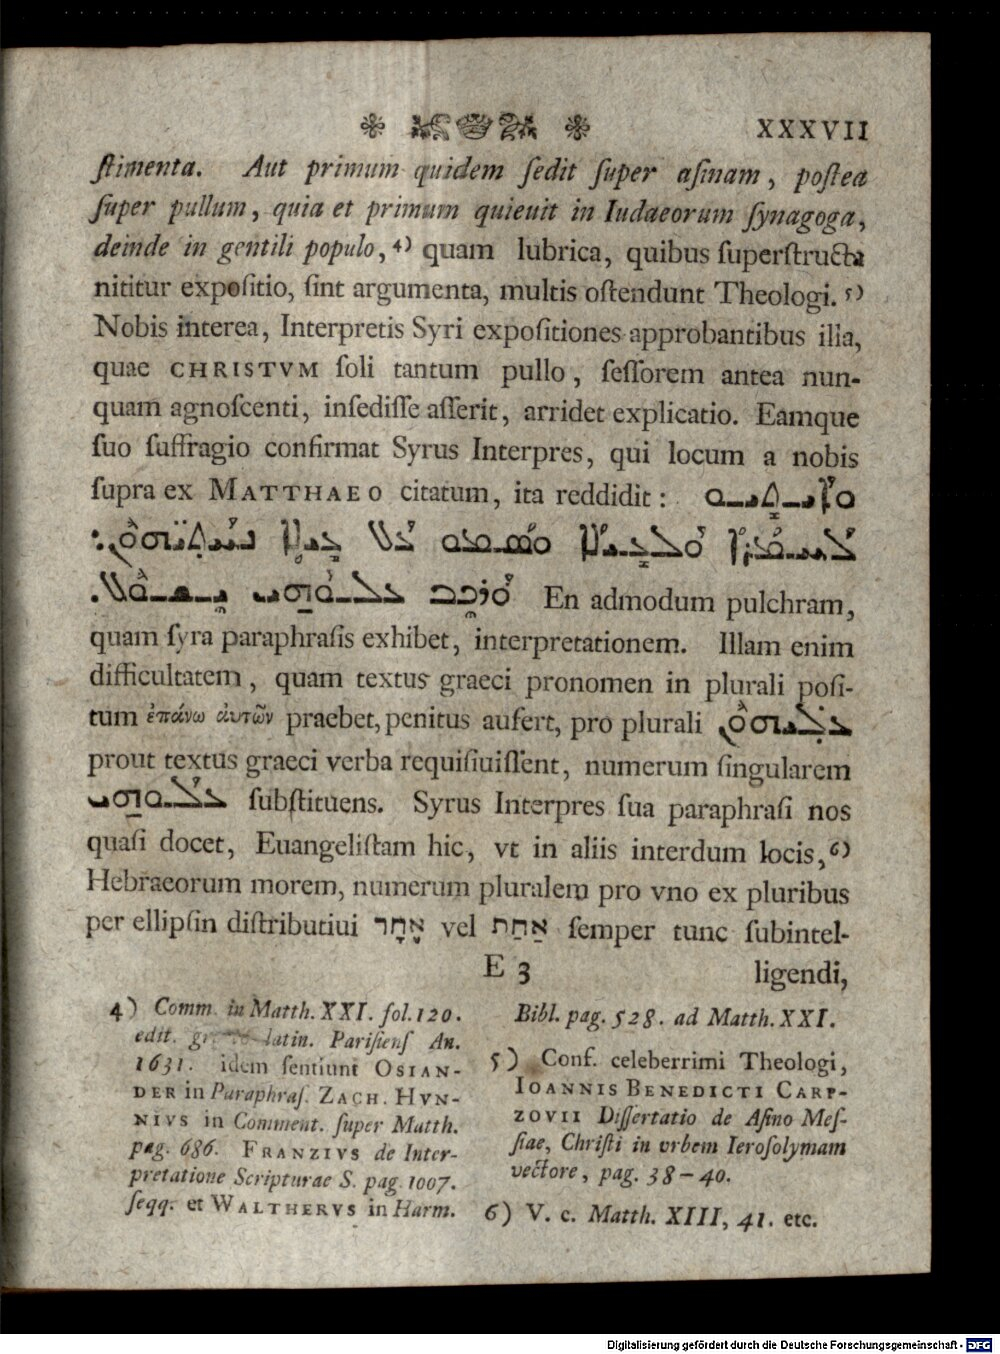 ❃ ❃ XXXVII
ſtimenta. Aut primum quidem ſedit ſuper aſinam, poſtea
ſuper pullum, quia et primum quieuit in Iudaeorum ſynagoga,
deinde in gentili populo, 4) quam lubrica, quibus ſuperſtructa
nititur expoſitio, ſint argumenta, multis oſtendunt Theologi. 5)
Nobis interea, Interpretis Syri expoſitiones approbantibus illa,
quae CHRISTVM ſoli tantum pullo, ſeſſorem antea nun-
quam agnoſcenti, inſediſſe aſſerit, arridet explicatio. Eamque
ſuo ſuffragio confirmat Syrus Interpres, qui locum a nobis
ſupra ex MATTHAEO citatum, ita reddidit: ܘܐܝܬܝܘ
ܠܚܡܪܬܐ ܘܠܥܝܠܐ ܘܣܡܘ ܥܠ ܥܝܠܐ ܢܚܬܝ̈ܗܘܢ:
ܘܪܟܒ ܥܠܘܗܝ ܝܫܘܥ. En admodum pulchram,
quam ſyra paraphraſis exhibet, interpretationem. Illam enim
difficultatem, quam textus graeci pronomen in plurali poſi-
tum ἐπάνω ἀυτῶν praebet, penitus aufert, pro plurali ܥܠܝܗܘܢ
prout textus graeci verba requiſiuiſſent, numerum ſingularem
ܥܠܘܗܝ ſubſtituens. Syrus Interpres ſua paraphraſi nos
quaſi docet, Euangeliſtam hic, vt in aliis interdum locis, 6)
Hebraeorum morem, numerum pluralem pro vno ex pluribus
per ellipſin diſtributiui אֶחָר vel אַחַת ſemper tunc ſubintel-
E 3 ligendi,
4) Comm. in Matth. XXI. fol. 120.
edit. latin. Pariſienſ An.
1631. idem ſentiunt OSIAN-
DER in Paraphraſ. ZACH. HVN-
NIVS in Comment. ſuper Matth.
pag. 686. FRANZIVS de Inter-
pretatione Scripturae S. pag. 1007.
ſeqq. et WALTHERVS in Harm.
Bibl. pag. 528. ad Matth. XXI.
5) Conf. celeberrimi Theologi,
IOANNIS BENEDICTI CARP-
ZOVII Diſſertatio de Aſino Meſ-
ſiae, Chriſti in vrbem Ieroſolymam
vectore, pag. 38–40.
6) V. c. Matth. XIII, 41. etc.
Digitalisierung gefördert durch die Deutsche Forschungsgemeinschaft - DFG